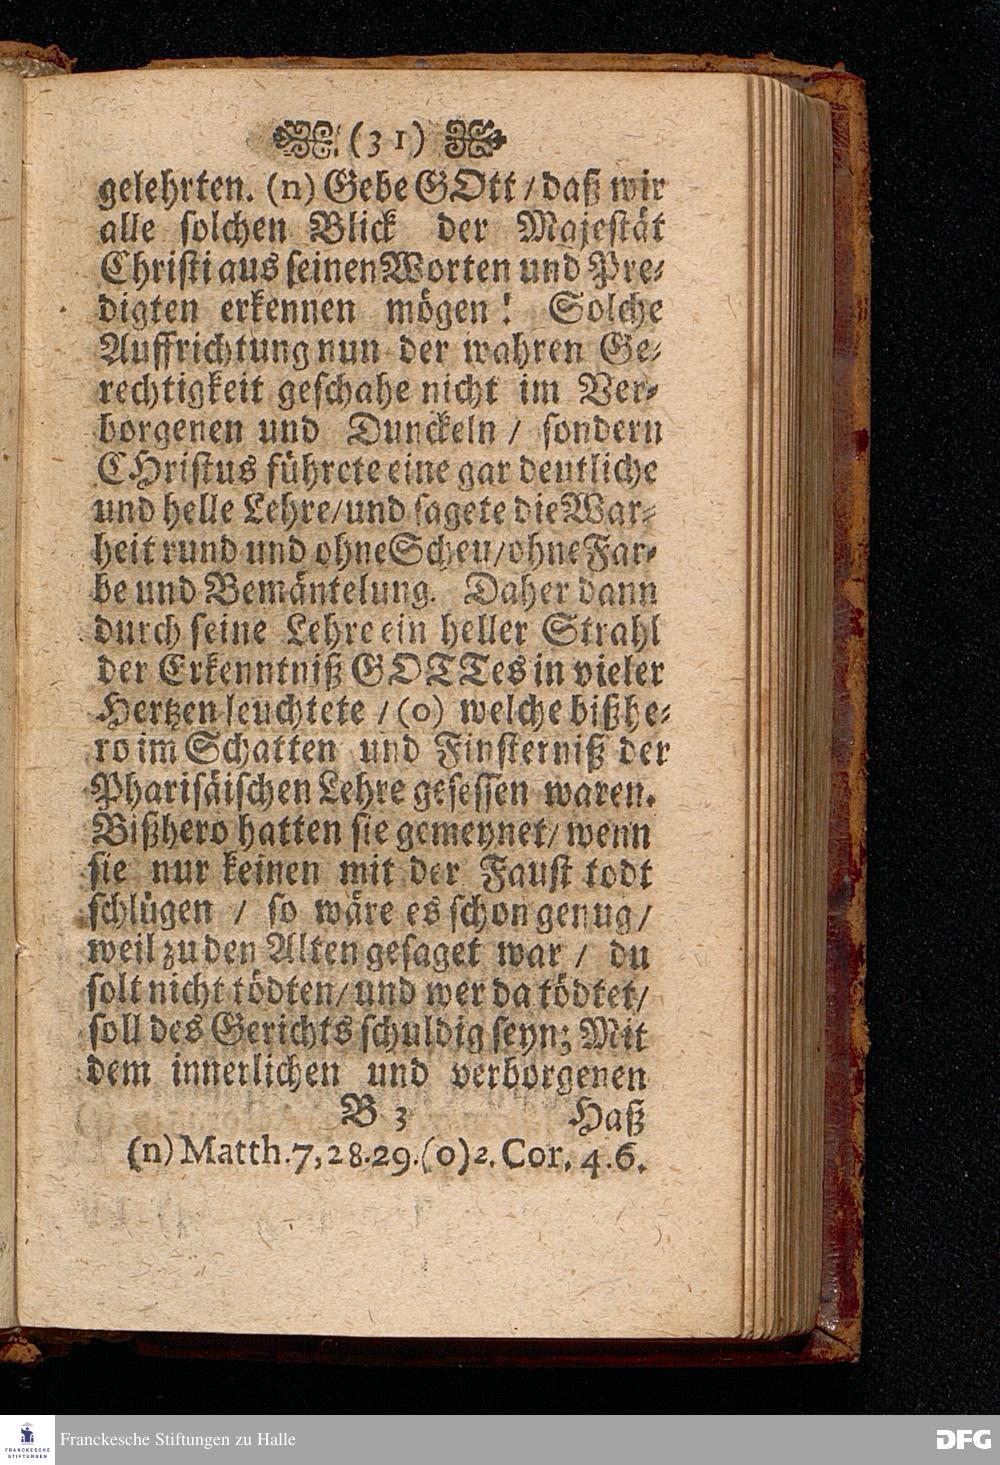 (31)
gelehrten. (n) Gebe GOtt / daß wir
alle solchen Blick der Majestät
Christi aus seinen Worten und Pre-
digten erkennen mögen! Solche
Auffrichtung nun der wahren Ge-
rechtigkeit geschahe nicht im Ver-
borgenen und Dunckeln / sondern
CHristus führete eine gar deutliche
und helle Lehre/ und sagete die War-
heit rund und ohne Scheu/ ohne Far-
be und Bemäntelung. Daher dann
durch seine Lehre ein heller Strahl
der Erkenntniß GOTTes in vieler
Hertzen leuchtete / (o) welche bißhe-
ro im Schatten und Finsterniß der
Pharisäischen Lehre gesessen waren.
Bißhero hatten sie gemeynet/ wenn
sie nur keinen mit der Faust todt
schlügen / so wäre es schon genug/
weil zu den Alten gesaget war / du
solt nicht tödten/ und wer da tödtet/
soll des Gerichts schuldig seyn; Mit
dem innerlichen und verborgenen
B 3 Haß
(n) Matth. 7, 28. 29. (o) 2. Cor. 4. 6.
FRANCKESCHE
STIFTUNGEN
Franckesche Stiftungen zu Halle
DFG